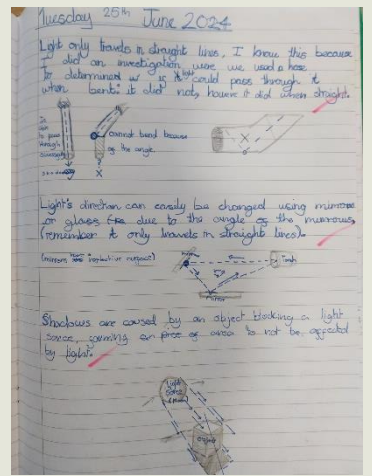 Tuesday 25th June 2024
Light only travels in straight lines, I know this because
I did an investigation were we used a hose
to determined w is it light could pass through it
when bent: it did not, howere it did when straight.
is able to pass through
cannot bend because
of the angle
Light's direction can easily be changed using mirrors
or glass due to the angle of the murrous
(remember it only travels in straight lines).
(mirrors have reflective surface)
Torch
mirror
Shadows are caused by an object blocking a light
sorce, forming an piece of area to not be affected
by light.
Light
Sorce
object